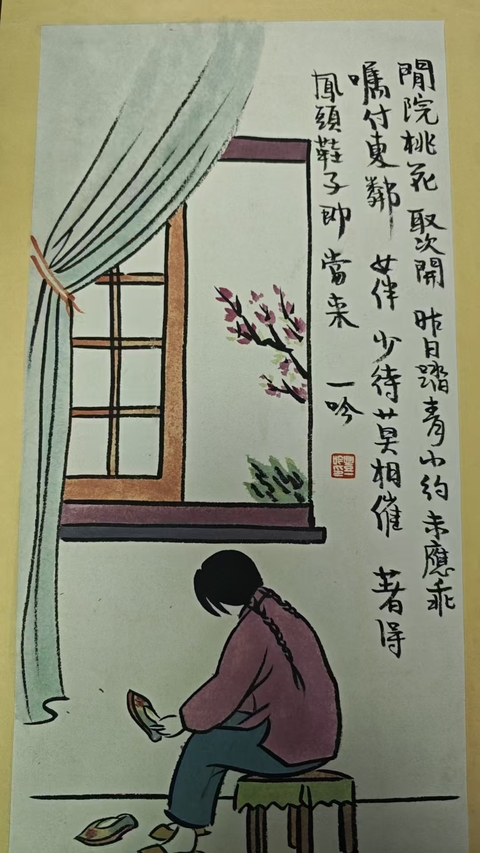 閒院桃花取次開昨日踏青小約未應乖
囑付東鄰女伴少待莫相催著得
鳳頭鞋子即當来
一吟